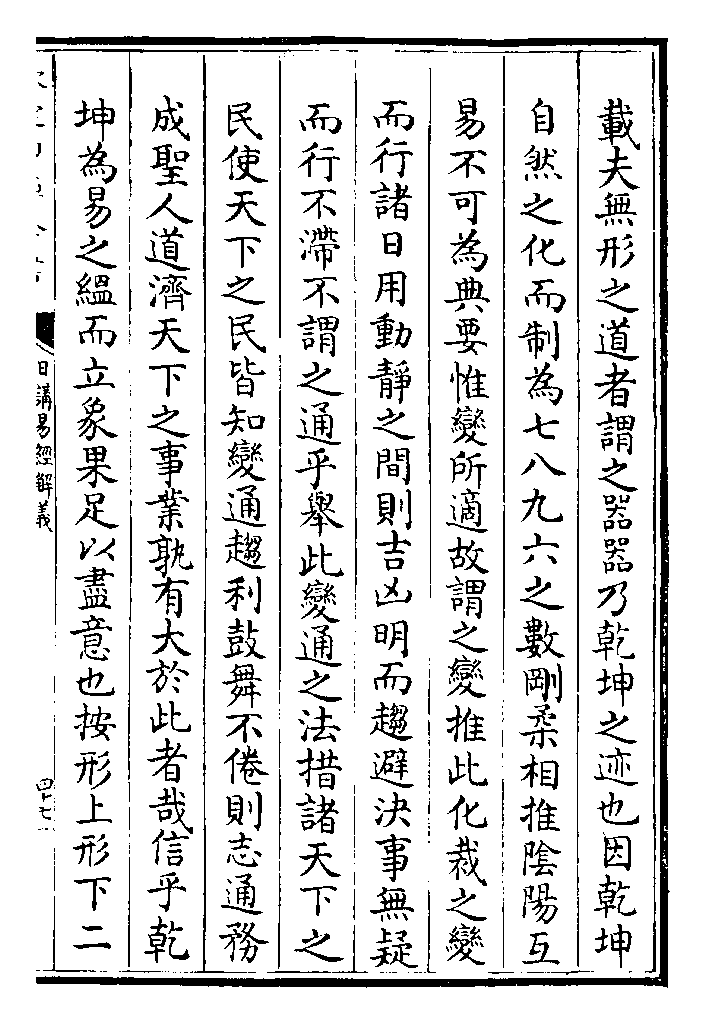 載夫無形之道者謂之器器乃乾坤之迹也因乾坤
自然之化而制為七八九六之數剛柔相推陰陽互
易不可為典要惟變所適故謂之變推此化裁之變
而行諸日用動靜之間則吉凶明而趨避決事無疑
而行不滯不謂之通乎舉此變通之法措諸天下之
民使天下之民皆知變通趨利鼓舞不倦則志通務
成聖人道濟天下之事業孰有大於此者哉信乎乾
坤為易之縕而立象果足以盡意也按形上形下二
日講易經解義
四十七